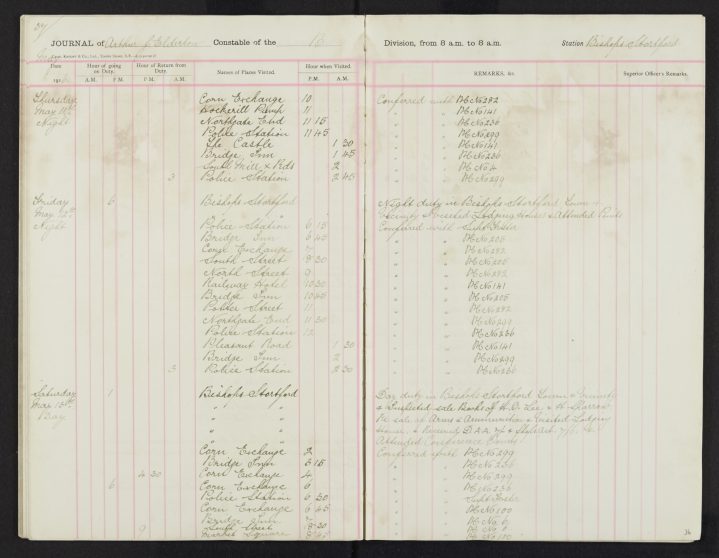 37
JOURNAL of Arthur J. Elderton Constable of the 13 Division, from 8 a.m. to 8 a.m. Station Bishops Stortford
Date
191
Hour of going on Duty.
A.M. P.M.
Hour of Return from Duty.
P.M. A.M.
Names of Places Visited.
Hour when Visited.
P.M. A.M.
REMARKS, &c.
Superior Officer's Remarks.
Thursday Corn Exchange 10 Conferred with PC No 282
May Hockerill Pump 11 " " PC No 141
Night Northgate End 11 15 " " PC No 236
Police Station 11 45 " " PC No 299
The Castle 1 30 " " PC No 141
Bridge Inn 1 45 " " PC No 236
South Mill & Rds 2 " " PC No
3 Police Station 2 45 " " PC No 299
Friday 6 Bishops Stortford Night duty in Bishops Stortford Town &
May 12th " Vicinity & Visited Lodging Houses & Attended Points
Night Police Station 6 15 Conferred with Supt Foster
Bridge Inn 6 45 " " PC No 205
Corn Exchange " " PC No 282
South Street 8 30 " " PC No 205
North Street 9 " " PC No 282
Railway Hotel 10 30 " " PC No 141
Bridge Inn 10 45 " " PC No 205
Potter Street 11 " " PC No 282
Northgate End 11 30 " " PC No 299
Police Station 12 " " PC No 236
Pleasant Road 1 30 " " PC No 141
Bridge Inn 2 " " PC No 299
3 Police Station 2 30 " " PC No 236
Saturday 1 Bishops Stortford Day duty in Bishops Stortford Town & Vicinity
May 13th " " & Inspected sale Books of H. D. Lee & H. Sharrow
Day " " Re sale of Arms & Ammunition & Visited Lodging
" " Attended Conference Points
Corn Exchange 2 Conferred with PC No 299
Bridge Inn 3 15 " " PC No 236
4 30 Corn Exchange 4 " " PC No 299
6 Corn Exchange 6 " " PC No 236
Police Station 6 30 " " Supt Foster
Corn Exchange 6 45 " " PC No 100
Bridge Inn " " PC No 6
South Street 8 30 " " PC No
9 Market Square 8 45 " " PC No 110